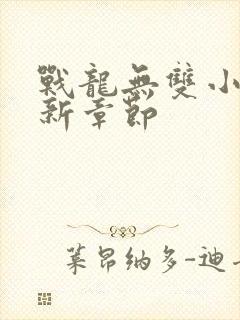 戰龍無雙小
新章節
葉昂納多-迪